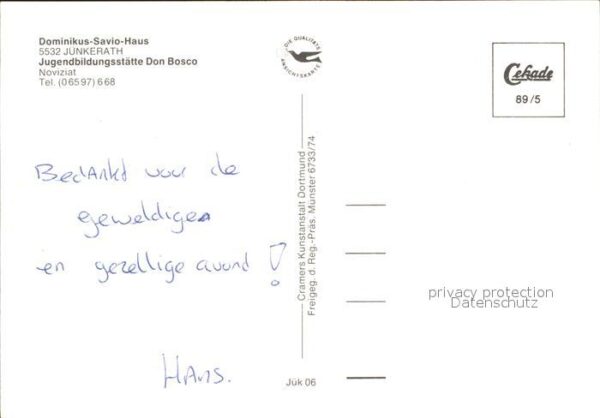 Dominikus-Savio-Haus
5532 JÜNKERATH
Jugendbildungsstätte Don Bosco
Noviziat
Tel. (0 65 97) 6 68
DIE QUALITÄTS
ANSICHTSKARTE
Cekade
89/5
Bedankt voor de
geweldige
en gezellige avond!
Hans.
Cramers Kunstanstalt Dortmund
Freigeg. d. Reg.-Präs. Münster 6733/74
Jük 06
privacy protection
Datenschutz